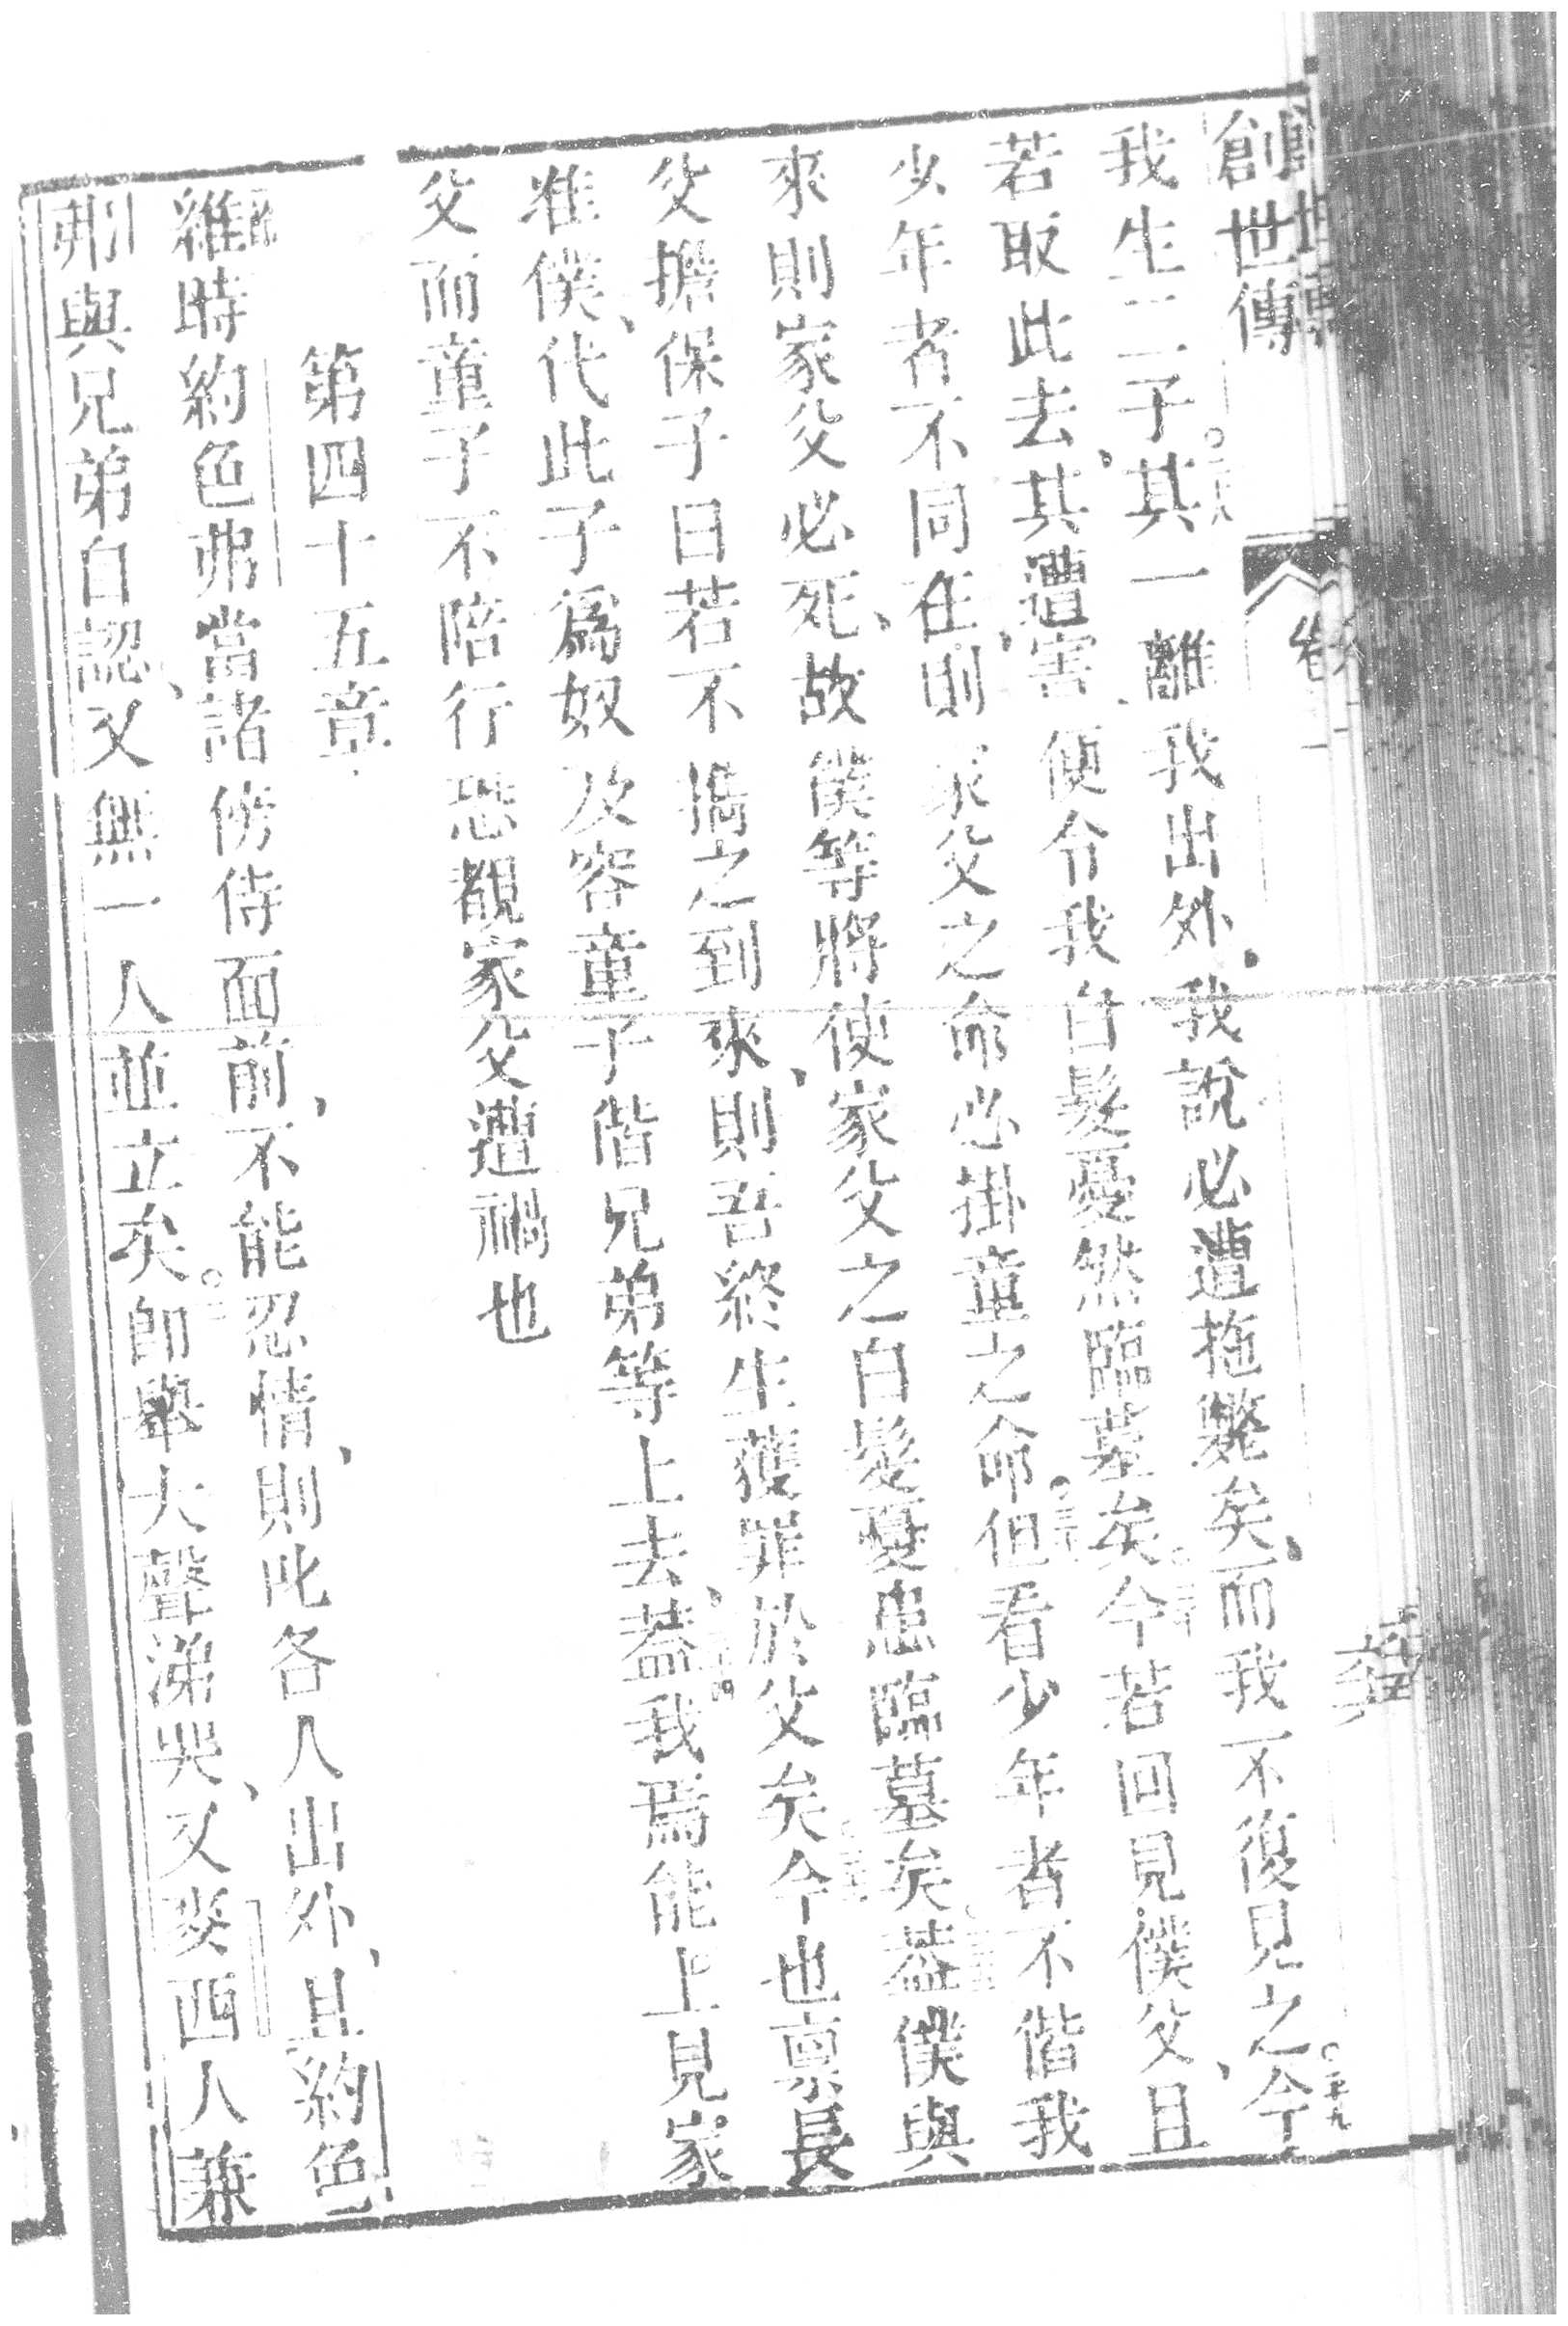 創世傳
我生二子。其一離我出外、我說必遭拖斃矣、而我不復見之。今
若取此去、其遭害、便令我白髮憂然臨墓矣。今若回見僕父、且
少年者不同在、則家父之命必掛童之命。但看少年者不偕我
來、則家父必死、故僕等將使家父之白髮憂患臨墓矣。葢僕與
父擔保子曰若不攜之到來、則吾終生獲罪於父矣。今也禀長
准僕、代此子爲奴及容童子偕兄弟等上去、葢我焉能上見家
父而童子不陪行恐覩家父遭禍也
第四十五章
維時約色弗當諸傍侍面前、不能忍情、則叱各人出外、且約色
弗與兄弟自認、又無一人並立矣。卽舉大聲涕哭、又麥西人兼